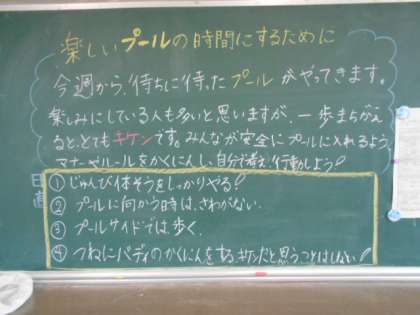 楽しいプールの時間にするために
今週から、待ちに待ったプールがやってきます。
楽しみにしている人も多いと思いますが、一歩まちがえ
ると、とてもキケンです。みんなが安全にプールに入れるよう、
マナーやルールをかくにんし、自分で考え行動しよう!
①じゅんび体そうをしっかりやる!
②プールに向かう時は、さわがない。
③プールサイドでは歩く。
④つねにバディのかくにんをする キケンだと思うことはしない!
日直